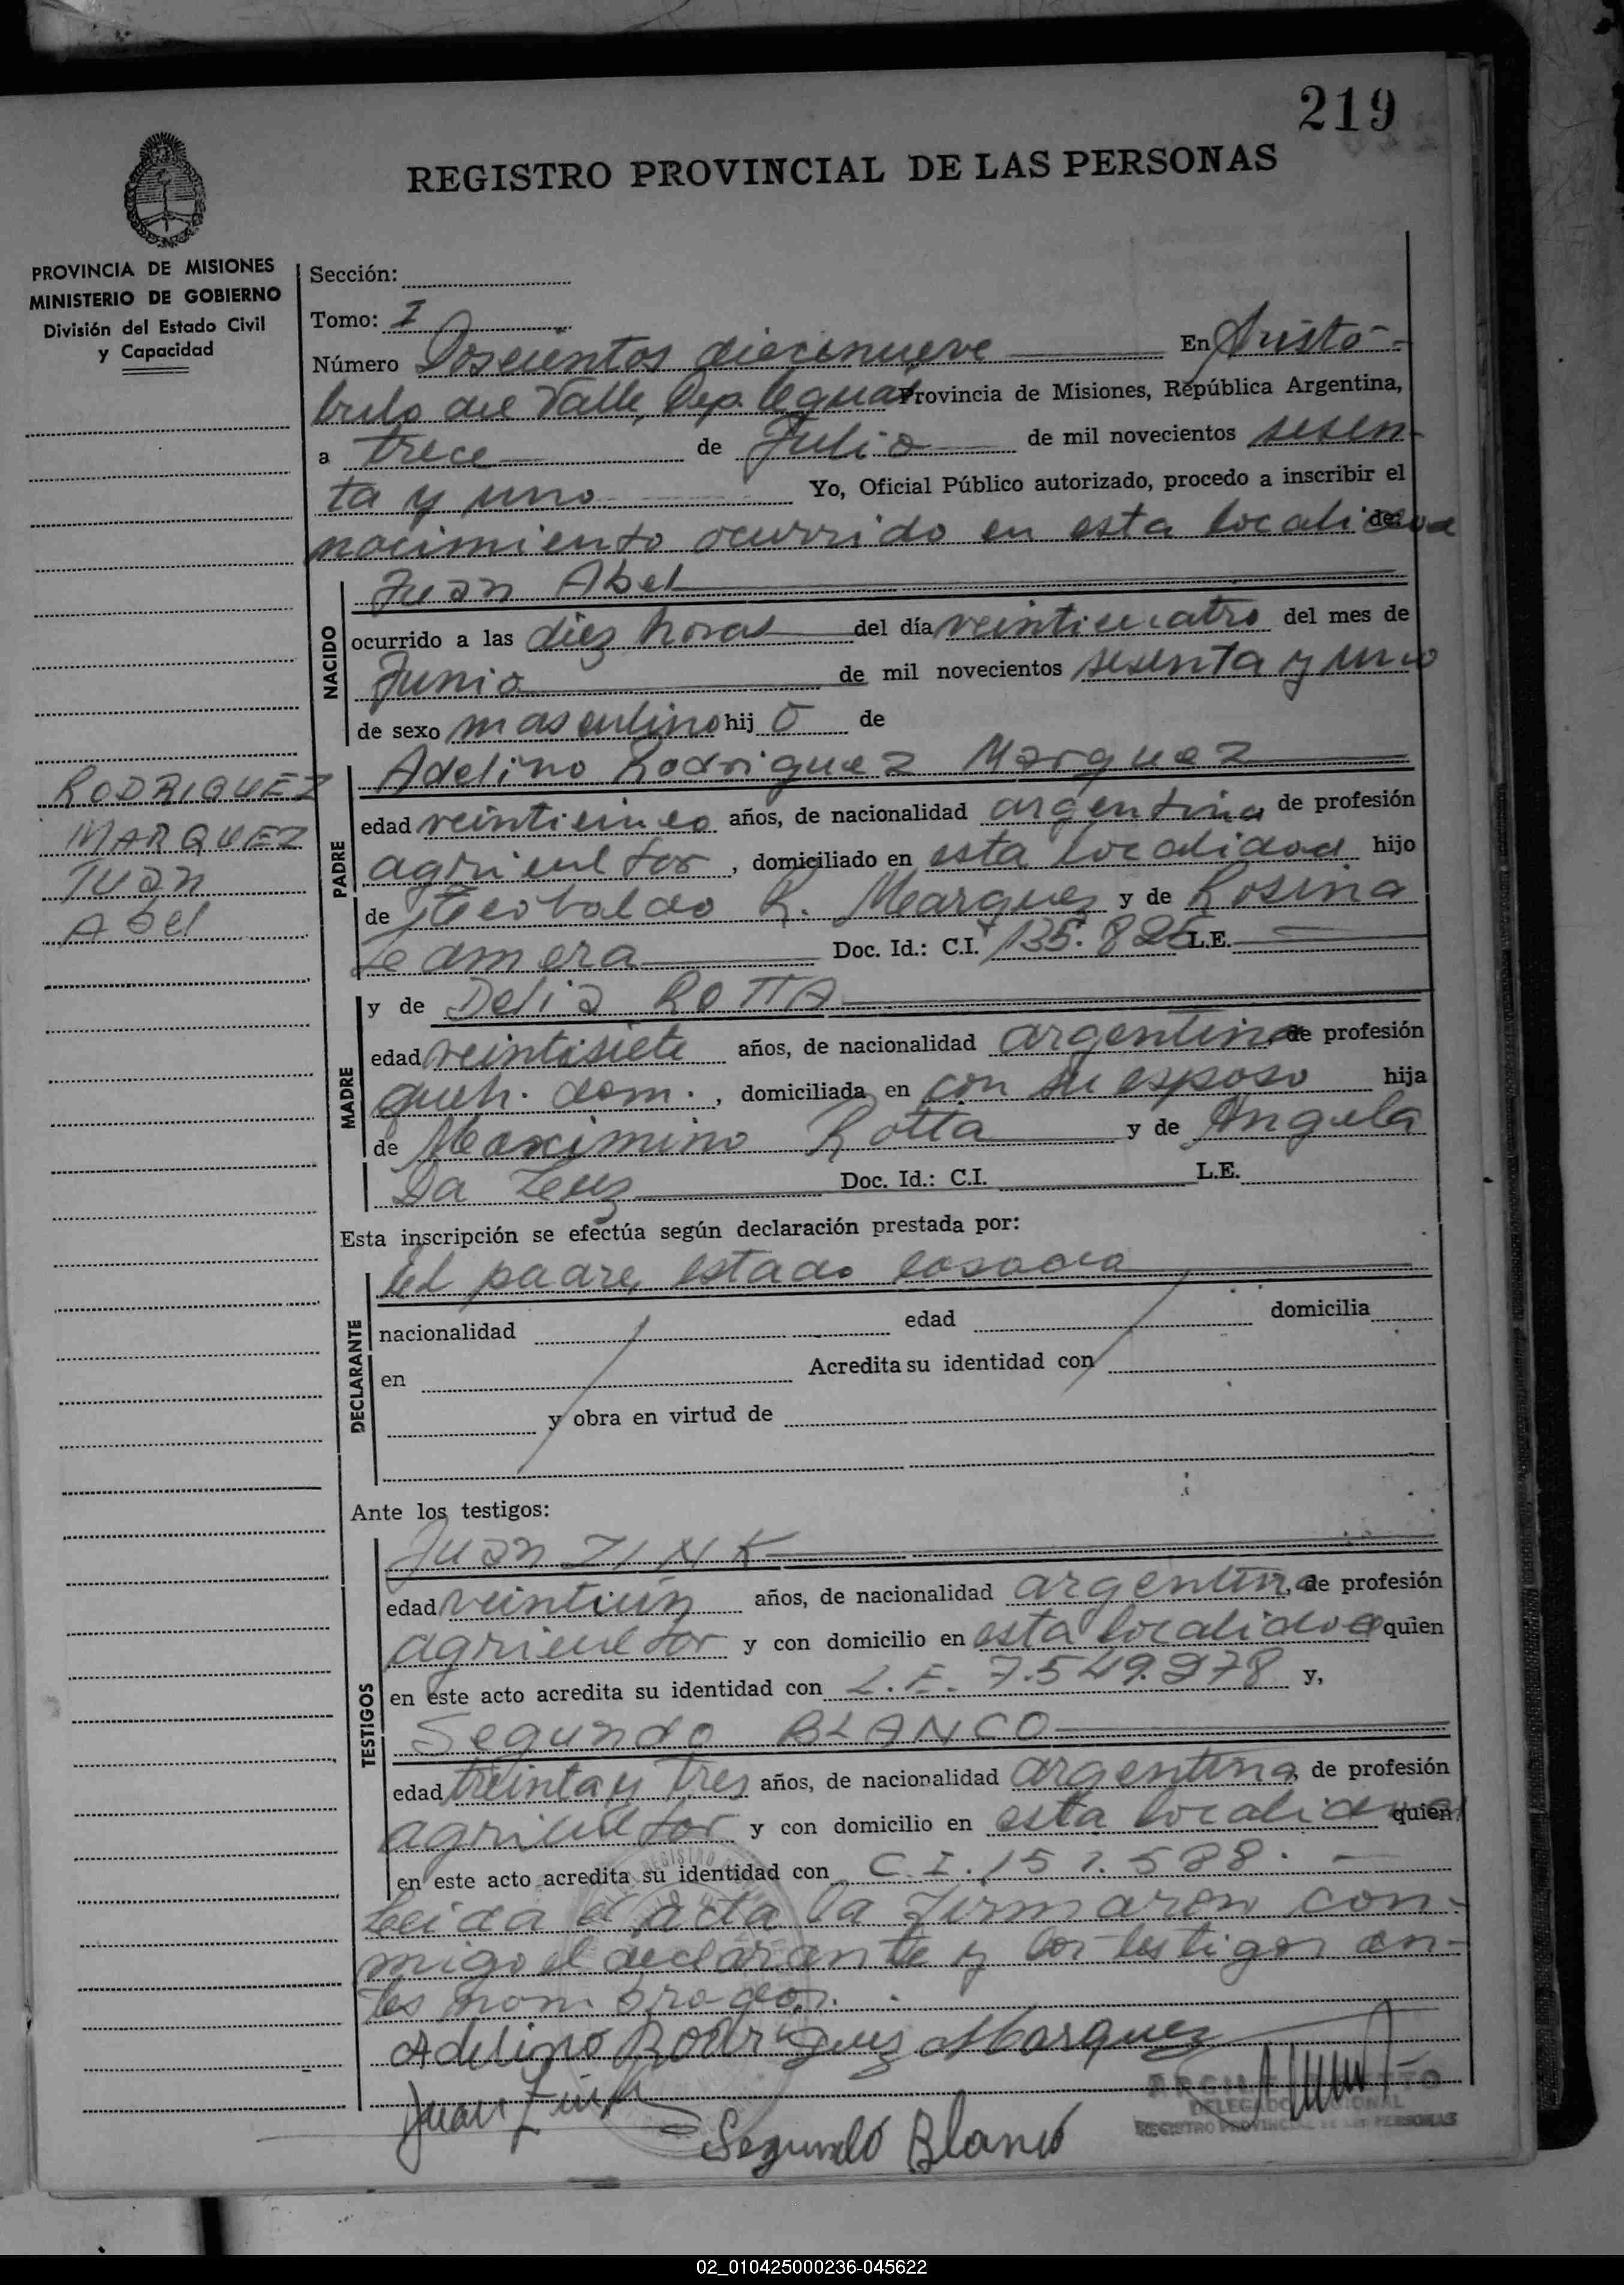 219
REGISTRO PROVINCIAL DE LAS PERSONAS
PROVINCIA DE MISIONES
MINISTERIO DE GOBIERNO
División del Estado Civil
y Capacidad
Sección:
Tomo: I
Número Doscientos diecinueve En Aristó-
bulo del Valle, Dep. Provincia de Misiones, República Argentina,
a trece de Julio de mil novecientos sesen-
ta y uno Yo, Oficial Público autorizado, procedo a inscribir el
nacimiento ocurrido en esta localidad de:
NACIDO
Juan Abel
ocurrido a las diez horas del día veinticuatro del mes de
Junio de mil novecientos sesenta y uno
de sexo masculino hij o de
RODRIGUEZ
MARQUEZ
Juan
Abel
PADRE
Adelino Rodriguez Marquez
edad veinticinco años, de nacionalidad argentina de profesión
agricultor, domiciliado en esta localidad hijo
de Teobaldo R. Marquez y de Rosina
Doc. Id.: C.I. L.E.
MADRE
y de Delia ROTTA
edad veintisiete años, de nacionalidad argentina de profesión
queh. dom., domiciliada en con su esposo hija
de Maximino Rotta y de Angela
Da Luz Doc. Id.: C.I. L.E.
Esta inscripción se efectúa según declaración prestada por:
DECLARANTE
el padre, estado casado
nacionalidad edad domicilia
en Acredita su identidad con
y obra en virtud de
Ante los testigos:
TESTIGOS
Juan ZINK
edad veintiún años, de nacionalidad argentina, de profesión
agricultor y con domicilio en esta localidad quien
en este acto acredita su identidad con L.E. 7.549.978 y,
Segundo BLANCO
edad treinta y tres años, de nacionalidad argentina, de profesión
agricultor y con domicilio en esta localidad quien
en este acto acredita su identidad con C.I. 157.588.-
Leida el acta la firmaron con-
migo el declarante y los testigos an-
tes nombrados.
Adelino Rodriguez Marquez
Juan Zink
Segundo Blanco
DELEGADO
REGISTRO PROVINCIAL DE LAS PERSONAS
02_010425000236-045622